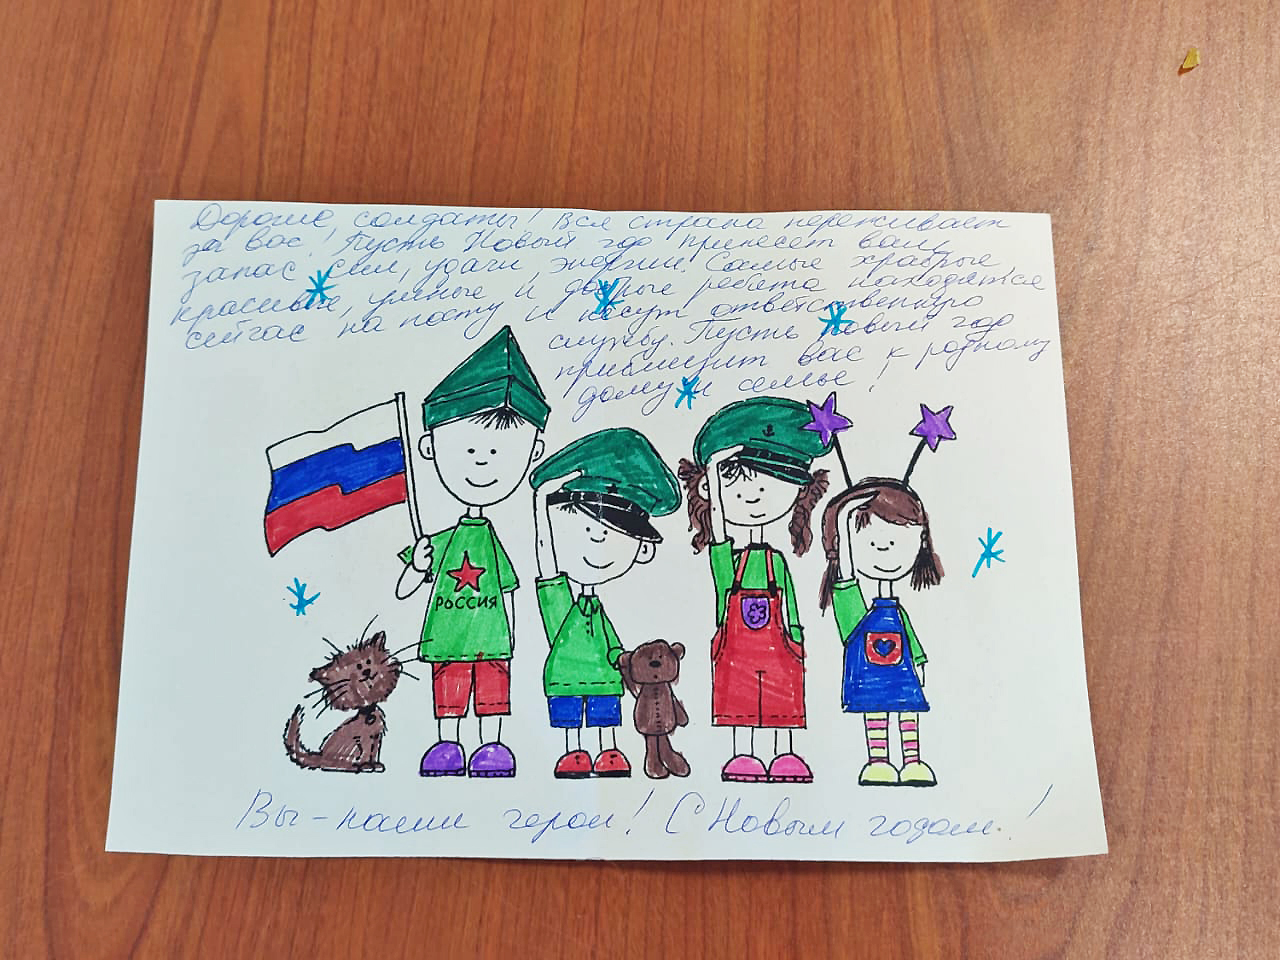 Дорогие солдаты! Вся страна переживает
за вас! Пусть Новый год принесет вам
запас сил, удачи, энергии. Самые храбрые,
красивые, умные и добрые ребята находятся
сейчас на посту и несут ответственную
службу. Пусть новый год
приблизит вас к родному
дому и семье!
РОССИЯ
Вы - наши герои! С Новым годом!